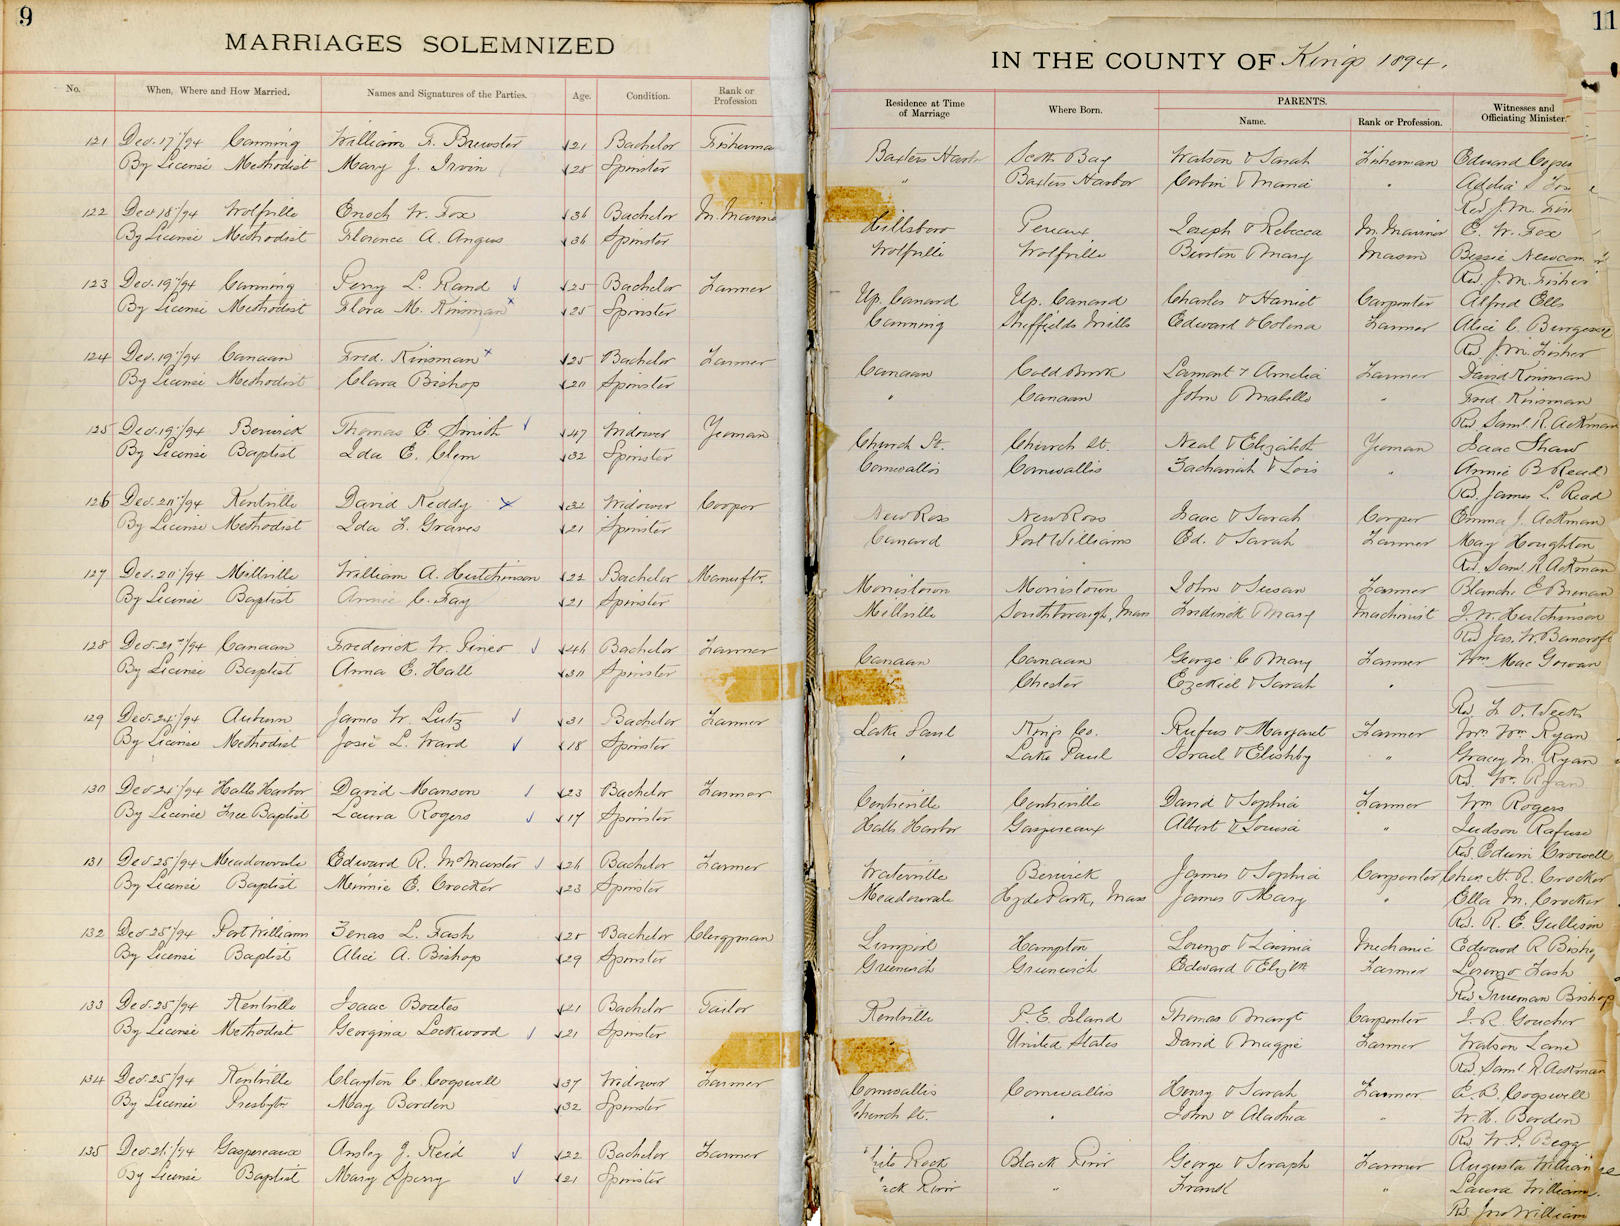 9
MARRIAGES SOLEMNIZED
No. When, Where and How Married. Names and Signatures of the Parties. Age. Condition. Rank or Profession
121 Dec. 17/94 Canning William F. Brewster 21 Bachelor Fisherma
By License Methodist Mary J. Irvin 25 Spinster
122 Dec. 18/94 Wolfville Enoch W. Fox 36 Bachelor M. Marine
By License Methodist Florence A. Angus 36 Spinster
123 Dec. 19/94 Canning Perry L. Rand 25 Bachelor Farmer
By License Methodist Flora M. Kinsman 25 Spinster
124 Dec. 19/94 Canaan Fred. Kinsman 25 Bachelor Farmer
By License Methodist Clara Bishop 20 Spinster
125 Dec. 19/94 Berwick Thomas E. Smith 47 Widower Yeoman
By License Baptist Ida E. Clem 32 Spinster
126 Dec. 20/94 Kentville David Keddy 32 Widower Cooper
By License Methodist Ida F. Graves 21 Spinster
127 Dec. 20/94 Millville William A. Hutchinson 22 Bachelor Manuftr.
By License Baptist Annie C. Fay 21 Spinster
128 Dec. 21/94 Canaan Frederick W. Pineo 46 Bachelor Farmer
By License Baptist Anna E. Hall 30 Spinster
129 Dec. 24/94 Auburn James W. Lutz 31 Bachelor Farmer
By License Methodist Josie L. Ward 18 Spinster
130 Dec 24/94 Halls Harbor David Manson 23 Bachelor Farmer
By License Free Baptist Laura Rogers 17 Spinster
131 Dec 25/94 Meadowvale Edward R. McMaster 26 Bachelor Farmer
By License Baptist Minnie E. Crocker 23 Spinster
132 Dec 25/94 Port Williams Zenas L. Fash 25 Bachelor Clergyman
By License Baptist Alice A. Bishop 29 Spinster
133 Dec. 25/94 Kentville Isaac Boates 21 Bachelor Tailor
By License Methodist Georgina Lockwood 21 Spinster
134 Dec. 25/94 Kentville Clayton C. Cogswell 37 Widower Farmer
By License Presbytn May Borden 32 Spinster
135 Dec. 26/94 Gaspereaux Ansley J. Reid 22 Bachelor Farmer
By License Baptist Mary Sperry 21 Spinster
11
IN THE COUNTY OF Kings 1894.
Residence at Time of Marriage Where Born. PARENTS. Name. Rank or Profession. Witnesses and Officiating Minister.
Baxters Harbor Scotts Bay Watson & Sarah Fisherman Edward
" Baxters Harbor Corbin & Maria " Adelia S
Rev J. M. Fis
Hillsboro Pereaux Joseph & Rebecca M. Mariner E. W. Fox
Wolfville Wolfville Burton & Mary Mason Bessie Newcom
Rev. J. M. Fisher
Up. Canard Up. Canard Charles & Harriet Carpenter Alfred Ells
Canning Sheffields Mills Edward & Farmer Alice C. Burgess
Rev. J. M. Fisher
Canaan Cold Brook Lamont & Amelia Farmer David Kinsman
" Canaan John & Mabille " Fred. Kinsman
Rev. Saml. R. Ackman
Church St. Church St. Neal & Elizabeth Yeoman Isaac Shaw
Cornwallis Cornwallis Zachariah & Lois " Annie B Read
Rev. James L. Read
New Ross New Ross Isaac & Sarah Cooper Emma J. Ackman
Canard Port Williams Ed. & Sarah Farmer May Houghton
Rev. Saml. R. Ackman
Morristown Morristown John & Susan Farmer Blanche E
Millville Southborough, Mass Fredirick & Mary Machinist J. W. Hutchinson
Rev Jas. W. Bancroft
Canaan Canaan George C & Mary Farmer Wm Mac Gowan
" Chester Ezekiel & Sarah "
Rev. F. O. Weeks
Lake Paul Kings Co. Rufus & Margaret Farmer Mrs Wm Ryan
" Lake Paul Israel & " Gracey M. Ryan
Rev. Wm. Ryan
Centreville Centreville David & Sophia Farmer Wm Rogers
Halls Harbor Gaspereaux Albert & Louisa " Judson Rafuse
Rev. Edwin Crowell
Waterville Berwick James & Sophia Carpenter Chas. H. R. Crocker
Meadowvale Hyde Park, Mass James & Mary " Ella M. Crocker
Rev. R. E. Gullison
Liverpool Hampton Lorenzo & Lavinia Mechanic Edward R Bishop
Greenwich Greenwich Edward & Elizth Farmer Lorenzo Fash
Rev. Trueman Bishop
Kentville P. E. Island Thomas & Margt Carpenter J. R. Goucher
United States David & Maggie Farmer Watson Lane
Rev. Saml R. Ackman
Cornwallis Cornwallis Henry & Sarah Farmer E. B. Cogswell
Church St. " John & Alathia " W. H. Borden
Rev W. P. Begg
ite Rock Black River George & Seraph Farmer Augusta William
ack River " Frank " Laura William
Rev. Jno William